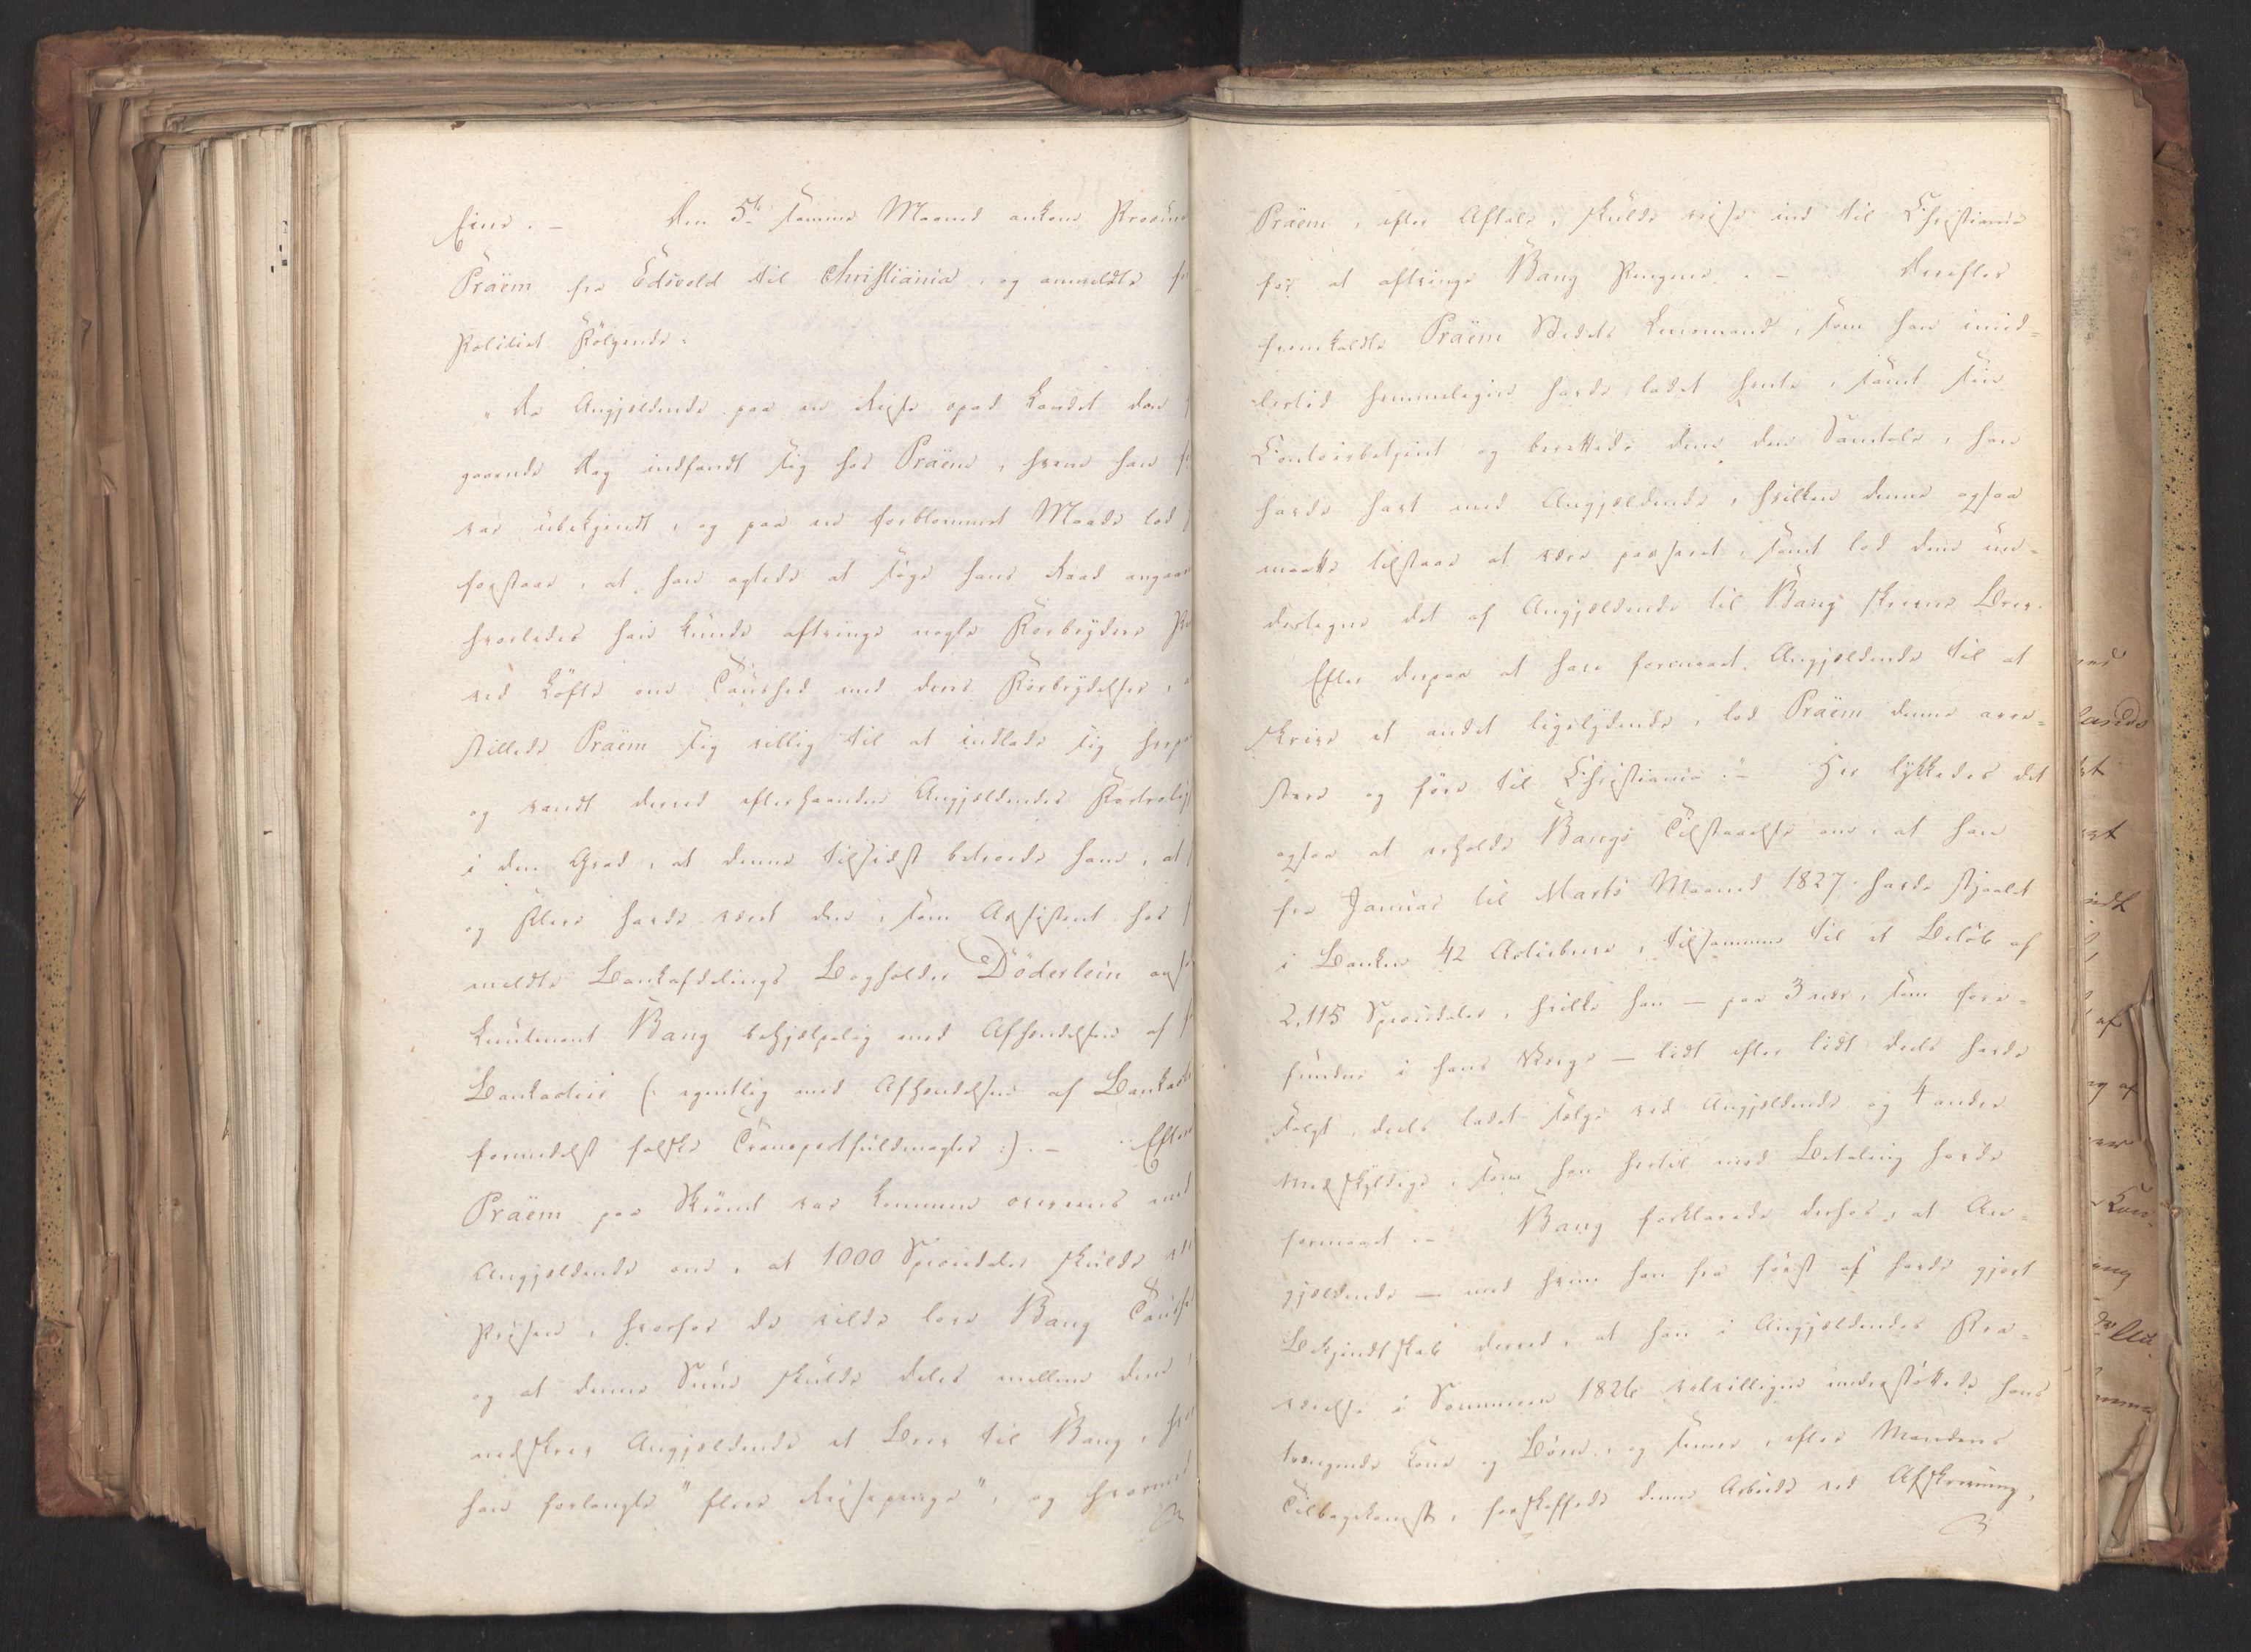 Eier. – Den 5te samme Maaned ankom Provins
Präem fra Edsvold til Christiania, og anmeldte
Politiet Følgende:
"Da Angjeldende paa en Reise opad Landet den
gaaende Dag indfandt sig hos Präem, hvem han
var übekjendt, og paa en forblommet Maade lod
forstaae, at han agtede at søge hans Raad angaae
hvorledes han kunde aftvinge nogle Forbrydere
ved Løfte om Taushed med deres Forbrydelse,
stillede Präem sig villig til at indlade sig herpaa
og vandt derved efterhaanden Angjeldendes Fortrolig
i den Grad, at denne tilsidst betroede ham, at
og Flere havde været den, som Assistent hos
meldte Bankafdelings Bogholder Döderlein ansat
Lieutenant Bang behjelpelig med Afsendelsen af
Bankactier (: egentlig med Afhændelsen af Bankactier
formedelst falske Transportfuldmagter :). – Efter
Präem paa Skrømt var kommen overeens med
Angjeldende om, at 1000 Speciedaler skulde være
Prisen, hvorfor de vilde love Bang Taushed
og at denne Sum skulde deles mellem dem,
nedskrev Angjeldende et Brev til Bang, hvor
han forlangte "flere Reisepenge", og hvormed
Präem, efter Aftale, skulde reise ind til Christiania
for at aftvinge Bang Pengene. – Derefter
fremkaldte Präem Stedets Lensmand, som han imid=
lertid hemmeligen havde ladet hente, samt sin
Contoirbetjent og berettede dem den Samtale, han
havde havt med Angjeldende, hvilken denne ogsaa
maatte tilstaae at være passeret, samt lod dem un=
dertegne det af Angjeldende til Bang skrevne Brev.
Efter derpaa at have formaaet Angjeldende til at
skrive et andet ligelydende, lod Präem denne arre=
stere og føre til Christiania." – Her lykkedes det
ogsaa at erholde Bangs Tilstaaelse om, at han
fra Januar til Marts Maaned 1827 havde stjaalet
i Banken 42 Actiebreve, tilsammen til et Beløb af
2,115 Speciedaler, hvilke han – paa 3 nær, som fore=
fundes i hans Værge – lidt efter lidt deels havde
solgt, deels ladet sælge ved Angjeldende og 4 andre
Medskyldige, som han hertil mod Betaling havde
formaaet. – Bang forklarede derhos, at An=
gjeldende – med hvem han fra først af havde gjort
Bekjendtskab derved, at han i Angjeldendes Fra=
værelse i Sommeren 1826 velvilligen understøttede hans
trængende Kone og Børn, og senere, efter Mandens
Tilbagekomst, forskaffede denne Arbeide ved Afskrivning,